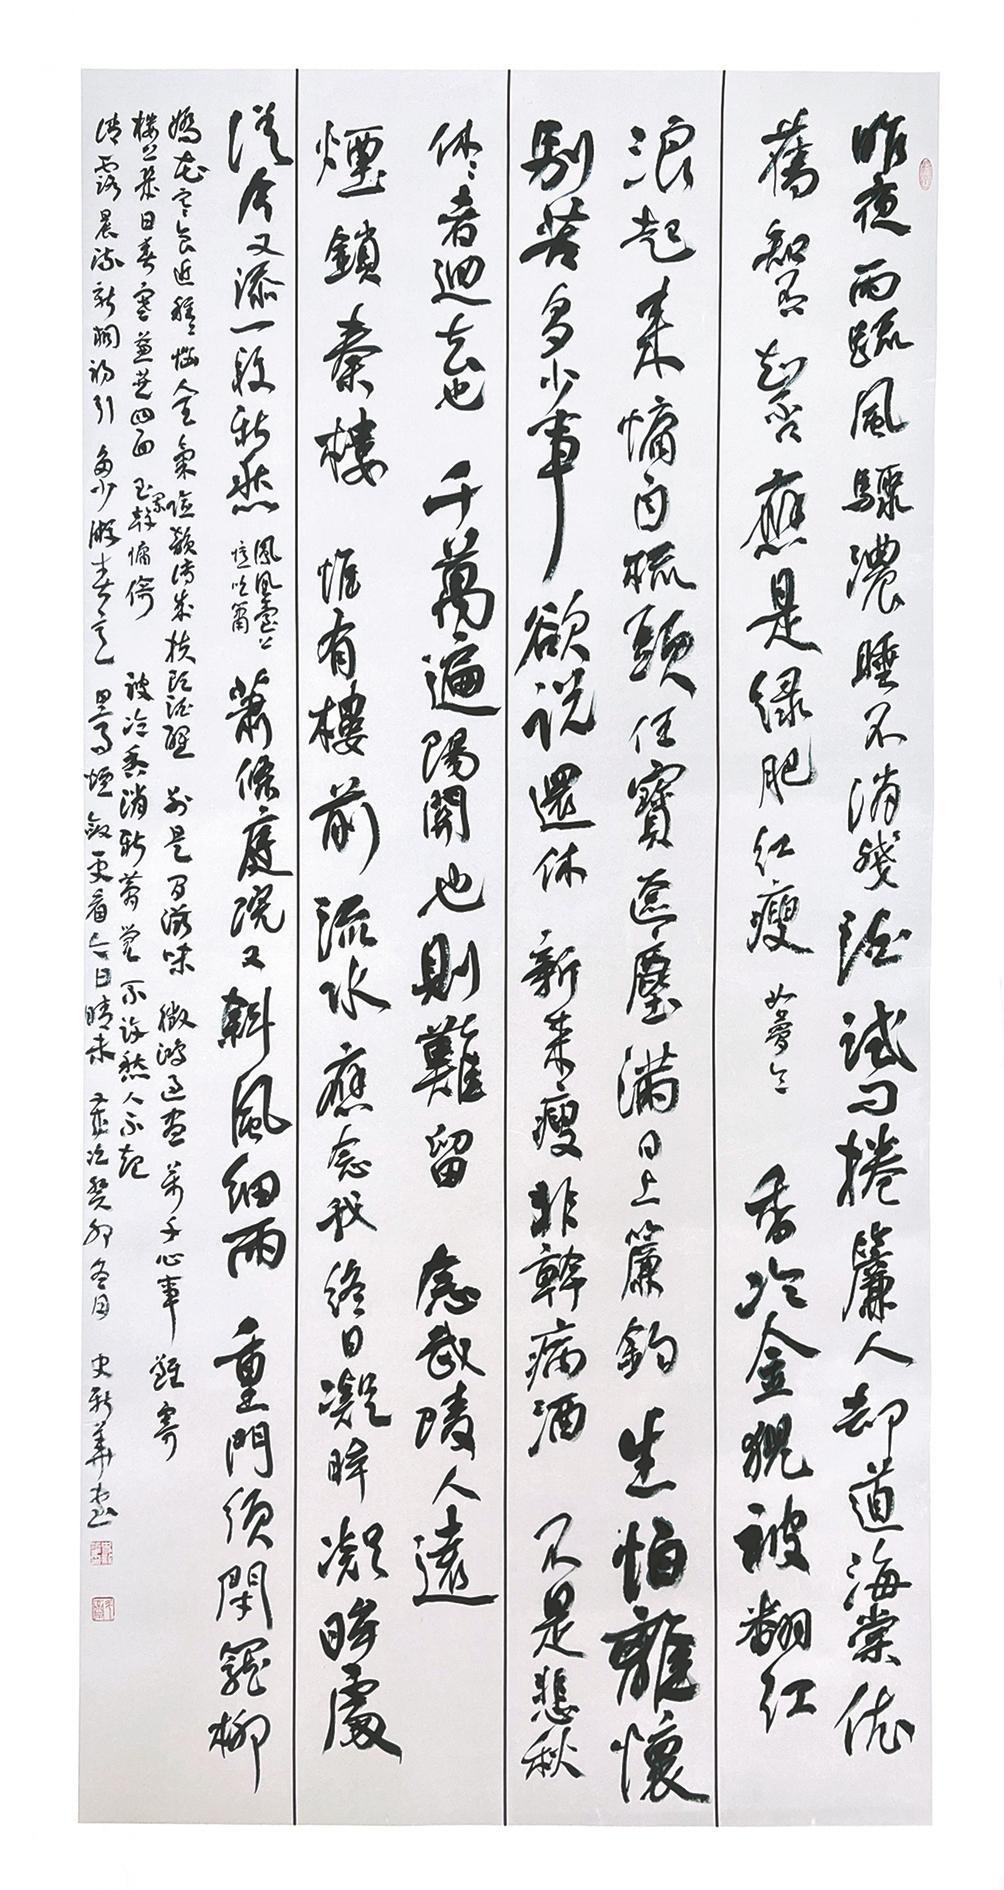 昨夜雨疏風驟濃睡不消殘酒試问捲簾人却道海棠依
舊知否知否應是绿肥红瘦 如夢令 香冷金猊被翻红
浪起来慵自梳頭任寶奩塵满日上簾鈎生怕離懷
别苦多少事欲说還休 新来瘦非幹病酒 不是悲秋
休休者迴去也 千萬遍陽關也則難留 念武陵人遠
煙鎖秦樓 惟有樓前流水應念我終日凝眸凝眸處
從今又添一段新愁 鳳凰臺上憶吹簫 蕭條庭院又斜風細雨 重門須閉寵柳
嬌花寒食近種種惱人天氣險韻詩成扶頭酒醒 别是閒滋味 徵鴻過盡萬千心事難寄
樓上幾日春寒簾垂四面 玉闌干慵倚 被冷香消新夢覺 不許愁人不起
清露晨流新桐初引 多少游春意 日高煙斂更看今日晴未 歲次癸卯冬月 史新華書